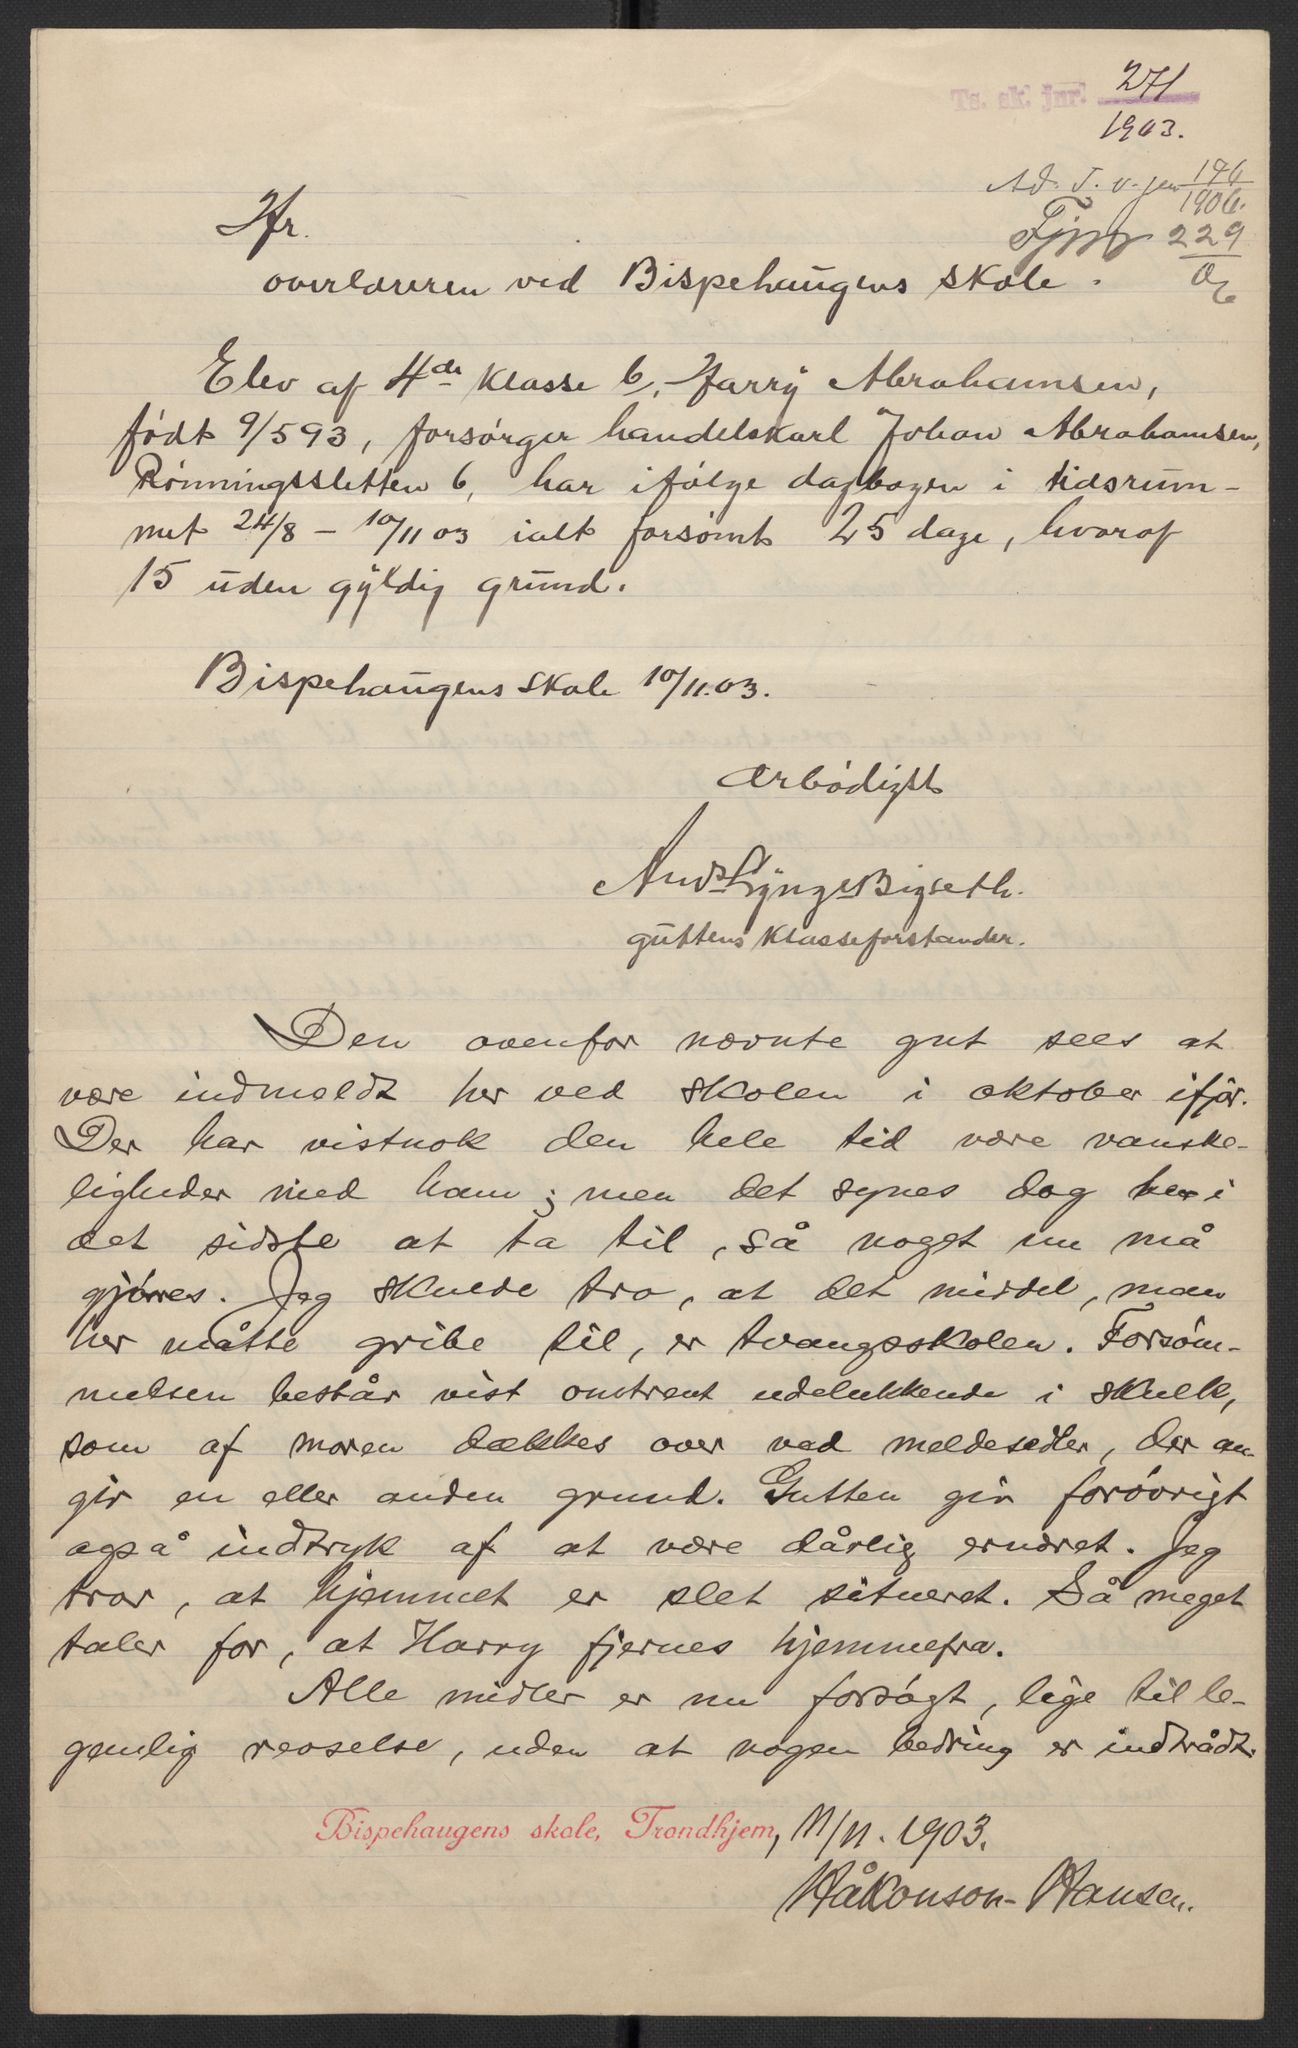 Ts. sk. jnr. 271
1903.
Ad. T. v. jnr 196
1906.
229
06
Hr.
overlæreren ved Bispehaugens skole.
Elev af 4de klasse b, Harry Abrahamsen,
født 9/5 93, forsørger handelskarl Johan Abrahamsen,
Rønningssletten 6, har ifølge dagbogen i tidsrum-
met 24/8 - 10/11 03 ialt forsømt 25 dage, hvoraf
15 uden gyldig grund.
Bispehaugens skole 10/11.03.
Ærbødigst
Ands Lyngs Bigseth.
guttens klasseforstander.
Den ovenfor nævnte gut sees at
være indmeldt her ved skolen i oktober ifjor.
Der har vistnok den hele tid være vanske-
ligheder med ham; men det synes dog her i
det sidste at ta til, så noget nu må
gjøres. Jeg skulde tro, at det middel, man
her måtte gribe til, er tvangsskolen. Forsøm-
melsen består vist omtrent udelukkende i skulk,
som af moren dækkes over ved meldesedler, der an-
gir en eller anden grund. Gutten gir forøvrigt
også indtryk af at være dårlig ernæret. Jeg
tror, at hjemmet er slet situeret. Så meget
taler for, at Harry fjernes hjemmefra.
Alle midler er nu forsøgt, lige til le-
gemlig revselse, uden at nogen bedring er indtrådt.
Bispehaugens skole, Trondhjem, 11/11. 1903.
Håkonson-Hansen.